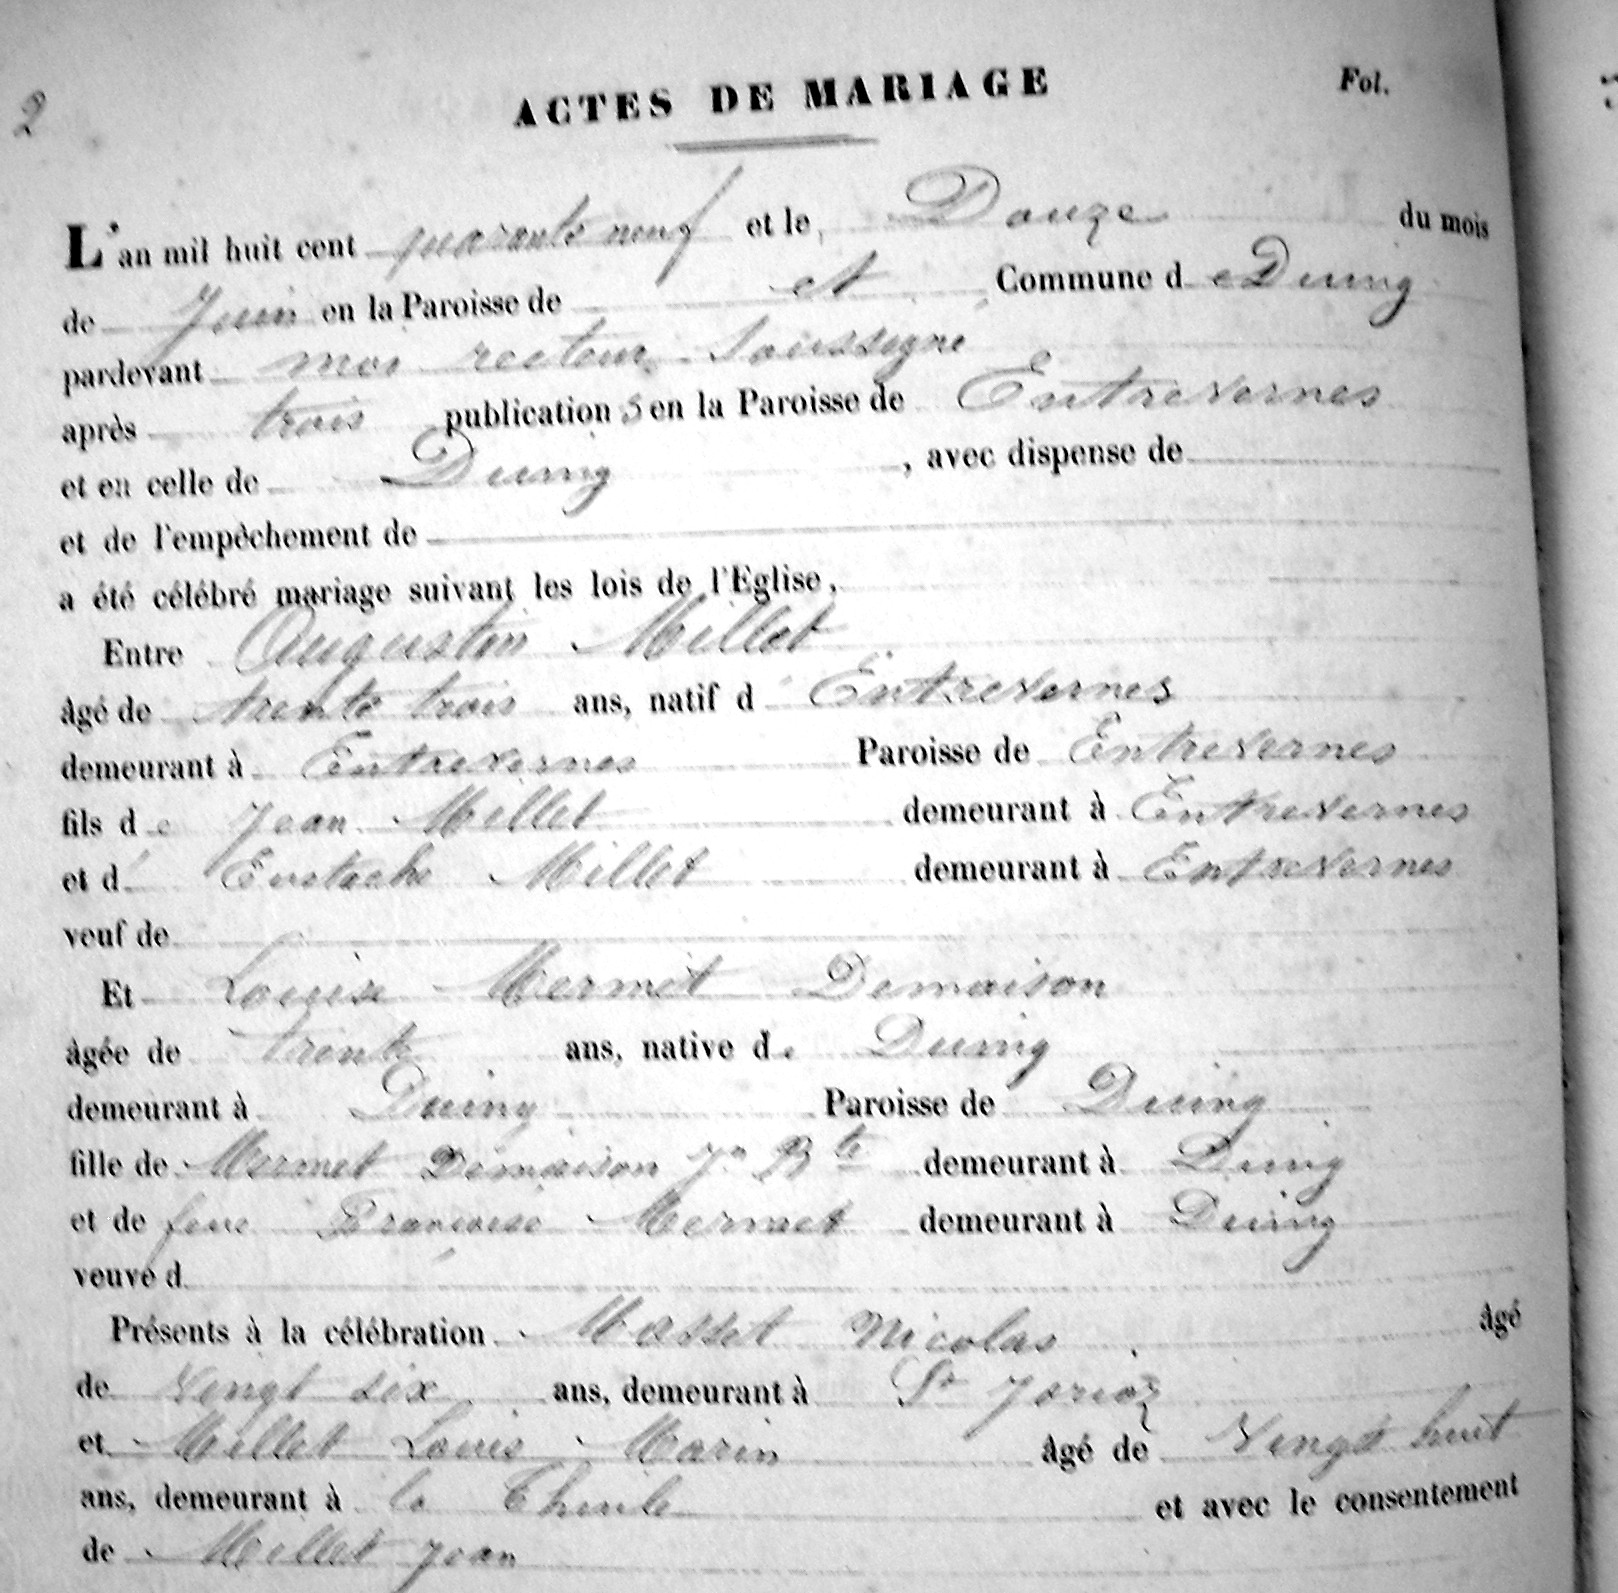 2
ACTES DE MARIAGE
Fol.
L'an mil huit cent quarante neuf et le Douze du mois
de Juin en la Paroisse de et Commune de Duing
pardevant moi recteur soussigné
après trois publications en la Paroisse de Entrevernes
et en celle de Duing, avec dispense de
et de l'empêchement de
a été célébré mariage suivant les lois de l'Eglise,
Entre Augustin Millet
âgé de trente trois ans, natif d' Entrevernes
demeurant à Entrevernes Paroisse de Entrevernes
fils de Jean Millet demeurant à Entrevernes
et d' Eustache Millet demeurant à Entrevernes
veuf de
Et Louise Mermet Demaison
âgée de trente ans, native de Duing
demeurant à Duing Paroisse de Duing
fille de Mermet Demaison Jn Bte demeurant à Duing
et de feue Françoise Mermet demeurant à Duing
veuve d
Présents à la célébration Masset Nicolas âgé
de vingt six ans, demeurant à St Jorioz
et Millet Louis Marin âgé de vingt huit
ans, demeurant à la Thuile et avec le consentement
de Millet Jean